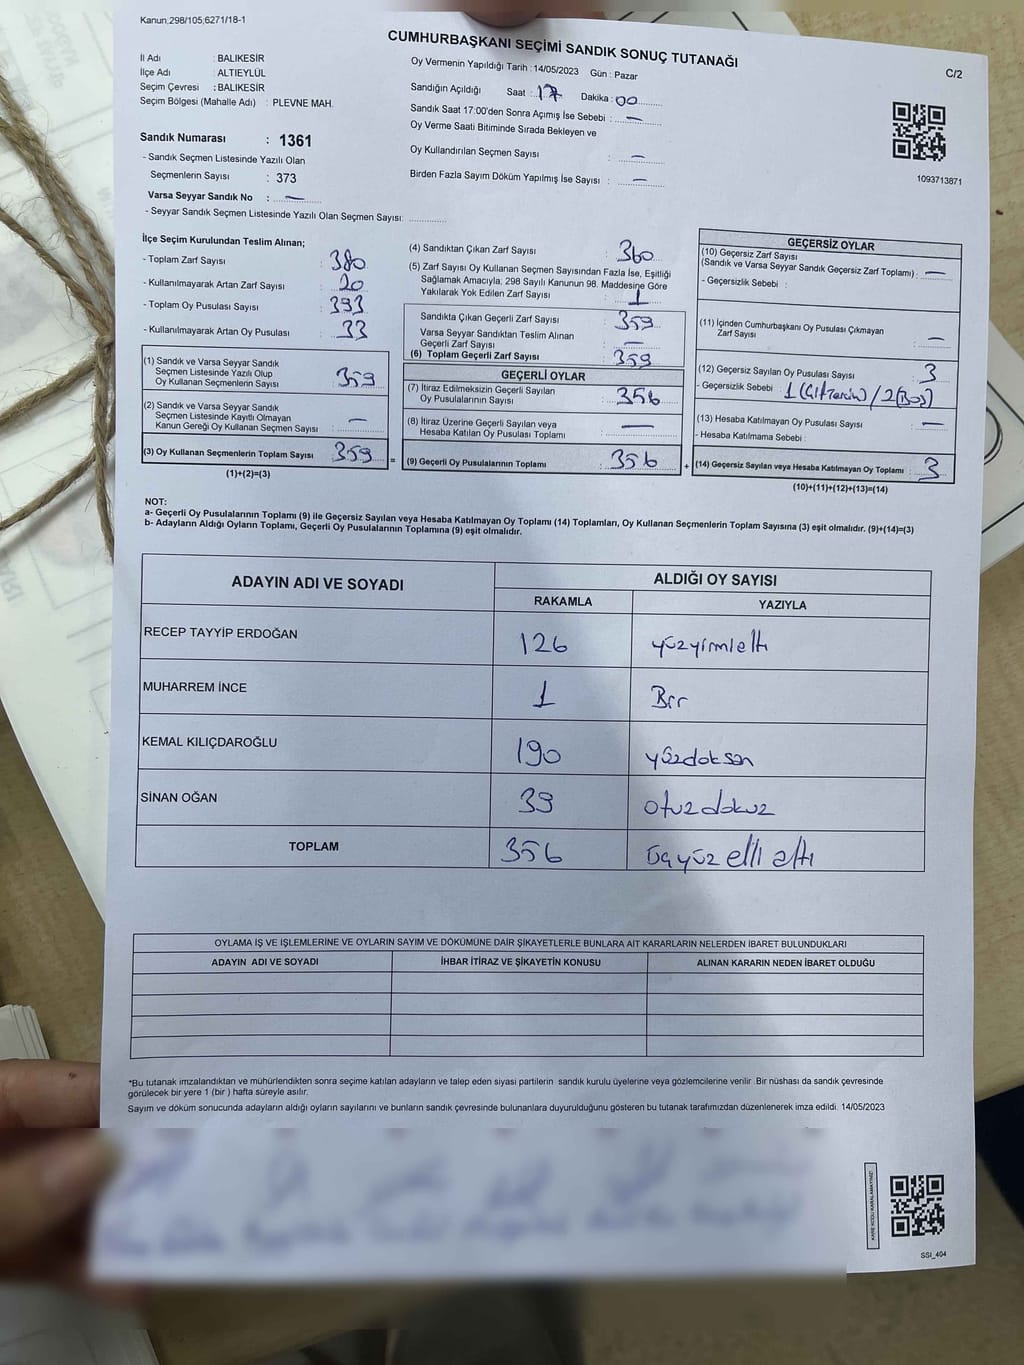 Kanun;298/105;6271/18-1
CUMHURBAŞKANI SEÇİMİ SANDIK SONUÇ TUTANAĞI
C/2
İl Adı : BALIKESİR
İlçe Adı : ALTIEYLÜL
Seçim Çevresi : BALIKESİR
Seçim Bölgesi (Mahalle Adı) : PLEVNE MAH.
Oy Vermenin Yapıldığı Tarih : 14/05/2023 Gün : Pazar
Sandığın Açıldığı Saat : 17 Dakika : 00
Sandık Saat 17:00'den Sonra Açımış İse Sebebi : —
Oy Verme Saati Bitiminde Sırada Bekleyen ve
Oy Kullandırılan Seçmen Sayısı : —
Birden Fazla Sayım Döküm Yapılmış İse Sayısı : —
1093713871
Sandık Numarası : 1361
- Sandık Seçmen Listesinde Yazılı Olan
Seçmenlerin Sayısı : 373
Varsa Seyyar Sandık No : —
- Seyyar Sandık Seçmen Listesinde Yazılı Olan Seçmen Sayısı:
İlçe Seçim Kurulundan Teslim Alınan;
- Toplam Zarf Sayısı : 380
- Kullanılmayarak Artan Zarf Sayısı : 20
- Toplam Oy Pusulası Sayısı : 393
- Kullanılmayarak Artan Oy Pusulası : 33
(1) Sandık ve Varsa Seyyar Sandık
Seçmen Listesinde Yazılı Olup
Oy Kullanan Seçmenlerin Sayısı : 359
(2) Sandık ve Varsa Seyyar Sandık
Seçmen Listesinde Kayıtlı Olmayan
Kanun Gereği Oy Kullanan Seçmen Sayısı : —
(3) Oy Kullanan Seçmenlerin Toplam Sayısı : 359
(1)+(2)=(3)
(4) Sandıktan Çıkan Zarf Sayısı : 360
(5) Zarf Sayısı Oy Kullanan Seçmen Sayısından Fazla İse, Eşitliği
Sağlamak Amacıyla, 298 Sayılı Kanunun 98. Maddesine Göre
Yakılarak Yok Edilen Zarf Sayısı : 1
Sandıkta Çıkan Geçerli Zarf Sayısı : 359
Varsa Seyyar Sandıktan Teslim Alınan
Geçerli Zarf Sayısı : —
(6) Toplam Geçerli Zarf Sayısı : 359
GEÇERLİ OYLAR
(7) İtiraz Edilmeksizin Geçerli Sayılan
Oy Pusulalarının Sayısı : 356
(8) İtiraz Üzerine Geçerli Sayılan veya
Hesaba Katılan Oy Pusulası Toplamı : —
= (9) Geçerli Oy Pusulalarının Toplamı : 356 +
GEÇERSİZ OYLAR
(10) Geçersiz Zarf Sayısı
(Sandık ve Varsa Seyyar Sandık Geçersiz Zarf Toplamı) : —
- Geçersizlik Sebebi :
(11) İçinden Cumhurbaşkanı Oy Pusulası Çıkmayan
Zarf Sayısı : —
(12) Geçersiz Sayılan Oy Pusulası Sayısı : 3
- Geçersizlik Sebebi :
(13) Hesaba Katılmayan Oy Pusulası Sayısı : —
- Hesaba Katılmama Sebebi :
(14) Geçersiz Sayılan veya Hesaba Katılmayan Oy Toplamı : 3
(10)+(11)+(12)+(13)=(14)
NOT:
a- Geçerli Oy Pusulalarının Toplamı (9) ile Geçersiz Sayılan veya Hesaba Katılmayan Oy Toplamı (14) Toplamları, Oy Kullanan Seçmenlerin Toplam Sayısına (3) eşit olmalıdır. (9)+(14)=(3)
b- Adayların Aldığı Oyların Toplamı, Geçerli Oy Pusulalarının Toplamına (9) eşit olmalıdır.
ADAYIN ADI VE SOYADI ALDIĞI OY SAYISI
RAKAMLA YAZIYLA
RECEP TAYYİP ERDOĞAN 126 yüzyirmialtı
MUHARREM İNCE 1 Bir
KEMAL KILIÇDAROĞLU 190 yüzdoksan
SİNAN OĞAN 39 otuzdokuz
TOPLAM 356 üçyüz elli altı
OYLAMA İŞ VE İŞLEMLERİNE VE OYLARIN SAYIM VE DÖKÜMÜNE DAİR ŞİKAYETLERLE BUNLARA AİT KARARLARIN NELERDEN İBARET BULUNDUKLARI
ADAYIN ADI VE SOYADI İHBAR İTİRAZ VE ŞİKAYETİN KONUSU ALINAN KARARIN NEDEN İBARET OLDUĞU
*Bu tutanak imzalandıktan ve mühürlendikten sonra seçime katılan adayların ve talep eden siyasi partilerin sandık kurulu üyelerine veya gözlemcilerine verilir. Bir nüshası da sandık çevresinde
görülecek bir yere 1 (bir ) hafta süreyle asılır.
Sayım ve döküm sonucunda adayların aldığı oyların sayılarını ve bunların sandık çevresinde bulunanlara duyurulduğunu gösteren bu tutanak tarafımızdan düzenlenerek imza edildi. 14/05/2023
KARE KODU KARALAMAYINIZ!
SSI_404